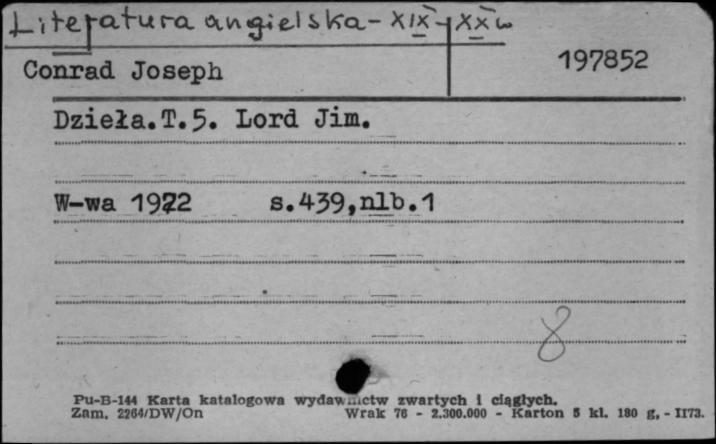 Literatura angielska - XIX - XX w
Conrad Joseph
197852
Dzieła.T.5. Lord Jim.
W-wa 1972 s.439,nlb.1
8
Pu-B-144 Karta katalogowa wydawnictw zwartych i ciągłych.
Zam. 2264/DW/On Wrak 76 - 2.300.000 - Karton 5 kl. 180 g, - II73.